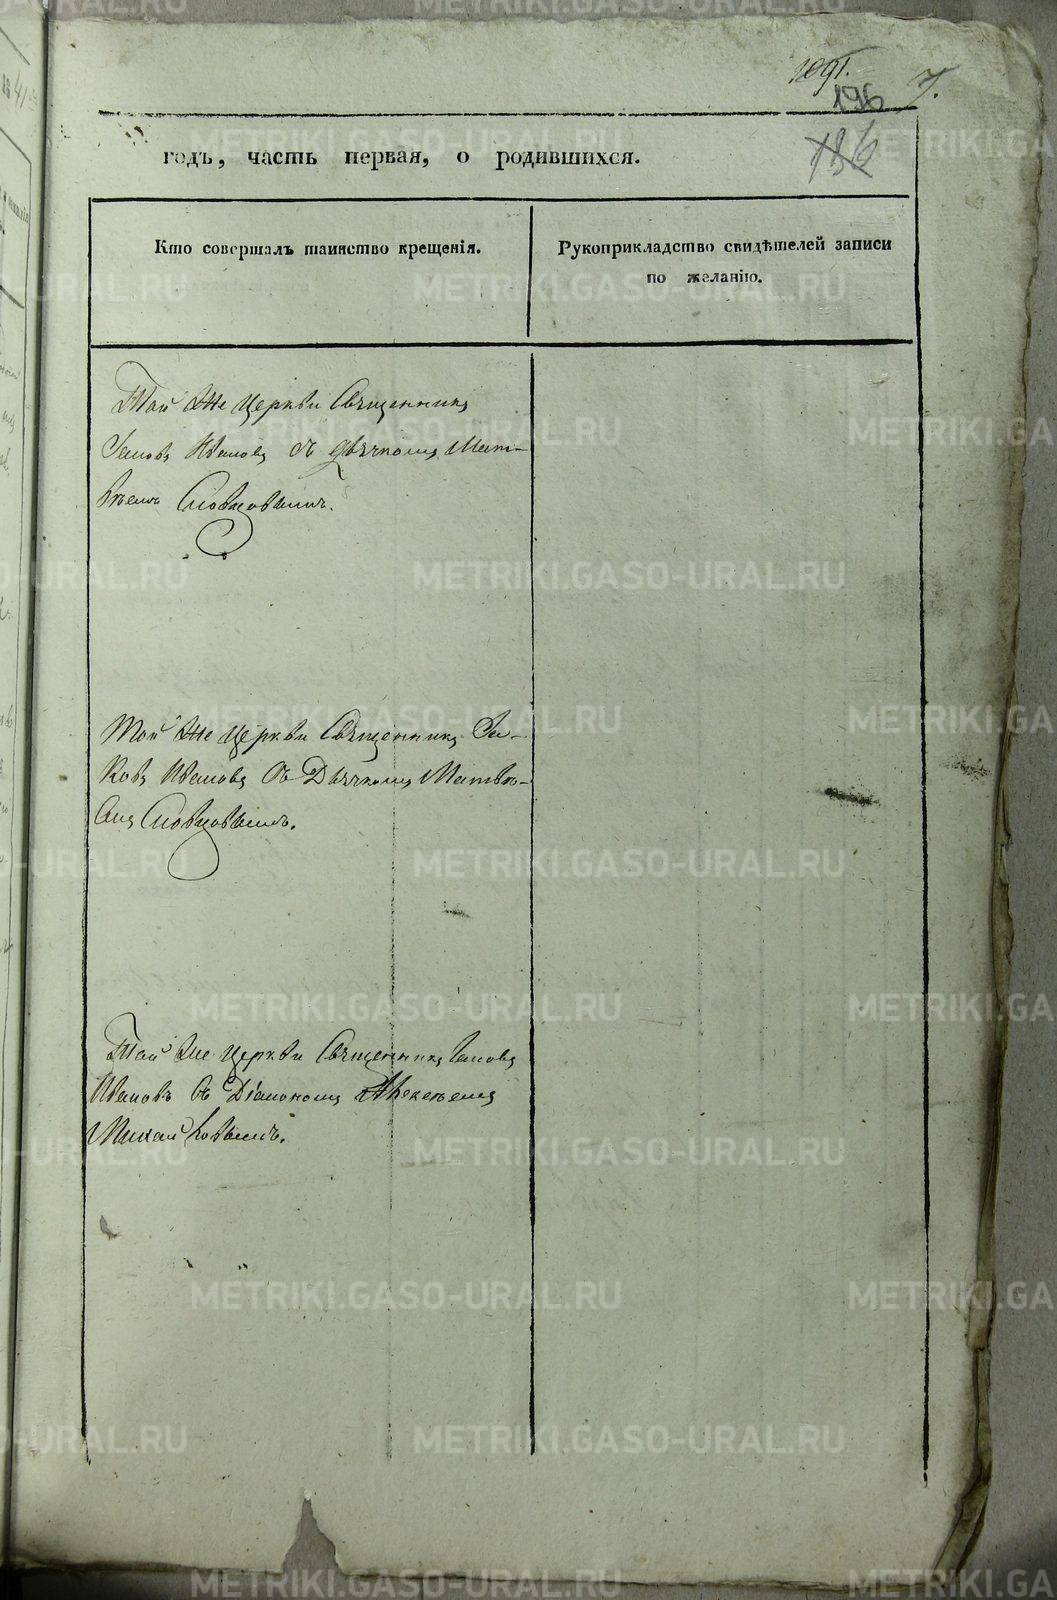 7.
196
136
годъ, часть первая, о родившихся.
Кто совершалъ таинство крещенія.
Рукоприкладство свидѣтелей записи
по желанію.
Той же церкви Священникъ
Іаковъ Ивановъ съ дьячкомъ Мат-
вѣемъ Словцовымъ.
Той же церкви Священникъ Іа-
ковъ Ивановъ съ Дьячкомъ Матвѣ-
емъ Словцовымъ.
Той же церкви Священникъ Іаковъ
Ивановъ съ Діакономъ
METRIKI.GASO-URAL.RU